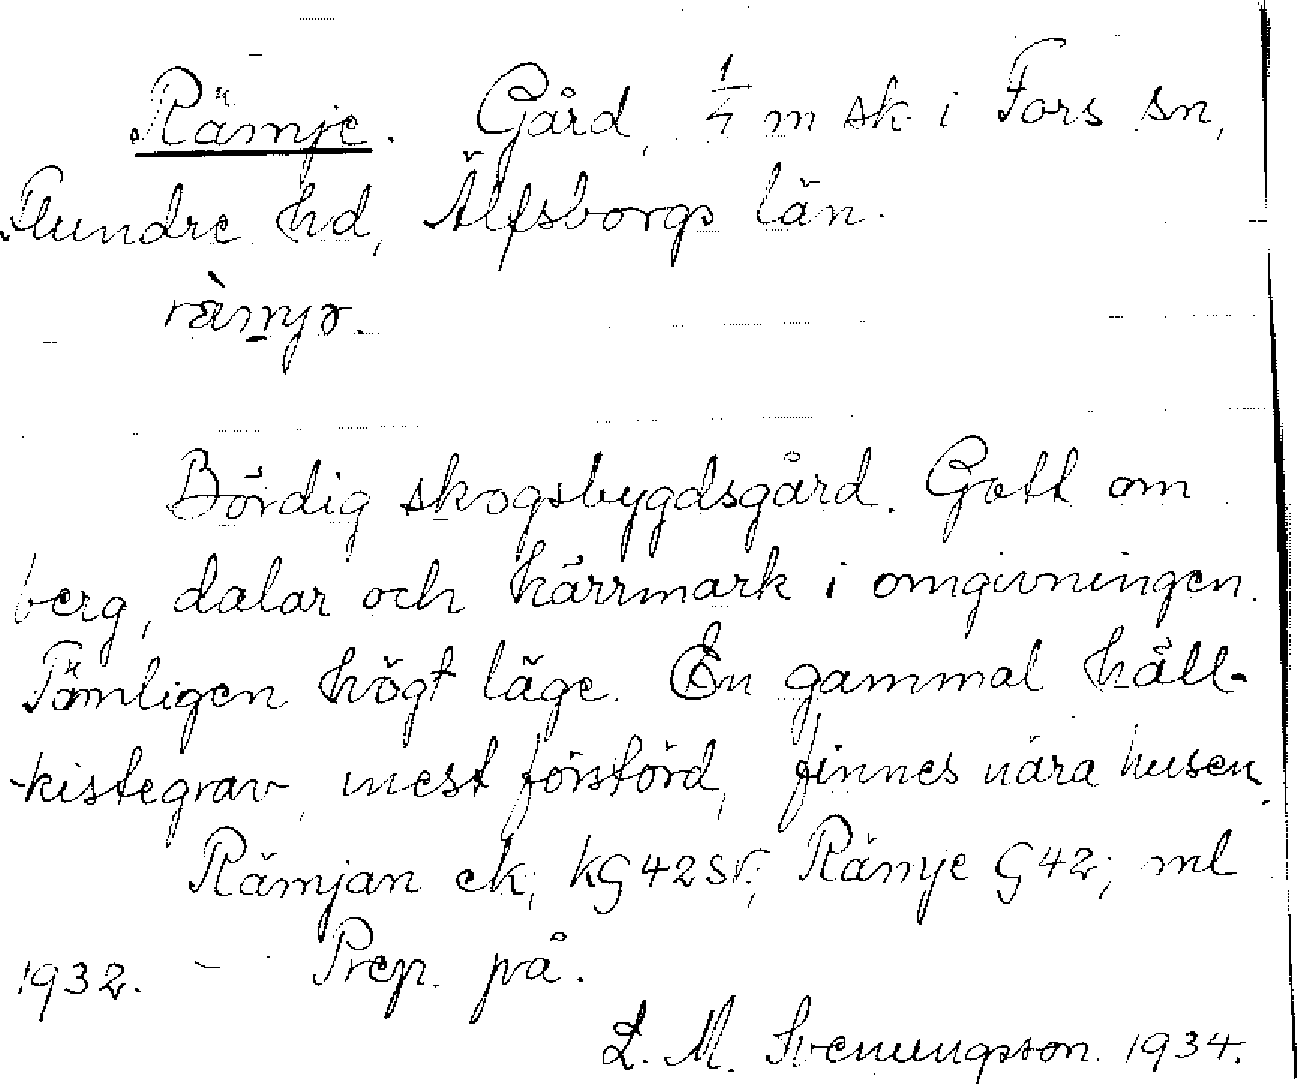 Rämje. Gård, 1/4 m sk i Fors sn,
Flundre hd, Älfsborgs län.
Bördig skogsbygdsgård. Gott om
berg, dalar och kärrmark i omgivningen.
Tämligen högt läge. En gammal häll-
kistegrav, mest förstörd, finnes nära husen.
Rämjan ek; kG42SV; Rämje G42; ml
1932. - Prep. på.
L. M. Svenungsson. 1934.